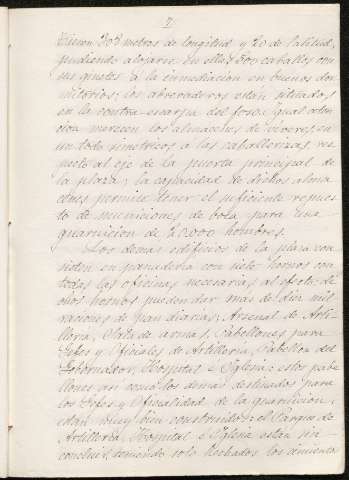 7
tienen 303 metros de longitud y 20 de latitud,
pudiendo alojarse en ellas 500 caballos con
sus ginetes á la inmediacion en buenos dor
mitorios; los abrevaderos estan situados
en la contra-escarpa del foso. Igual aten
cion merecen los almacenes de viveres, en
un todo simetricos a las caballerizas res
pecto al eje de la puerta principal de
la plaza; la capacidad de dichos alma
cenes permite tener el suficiente repues
to de municiones de boca para una
guarnicion de 20.000 hombres.
Los demas edificios de la plaza con
sisten en panaderia con siete hornos con
todas las oficinas necesarias, al efecto de
chos hornos pueden dar mas de diez mil
raciones de pan diarias; Arsenal de Arti-
lleria, Sala de armas, Pabellones para
Jefes y Oficiales de Artilleria, Pabellon del
Gobernador, Hospital é Iglesia: estos pabe
llones asi como los demas destinados para
los Jefes y Oficialidad de la guarnicion,
estan muy bien construidos: el Parque de
Artilleria, Hospital é Iglesia estan sin
concluir, teniendo solo hechados los cimientos